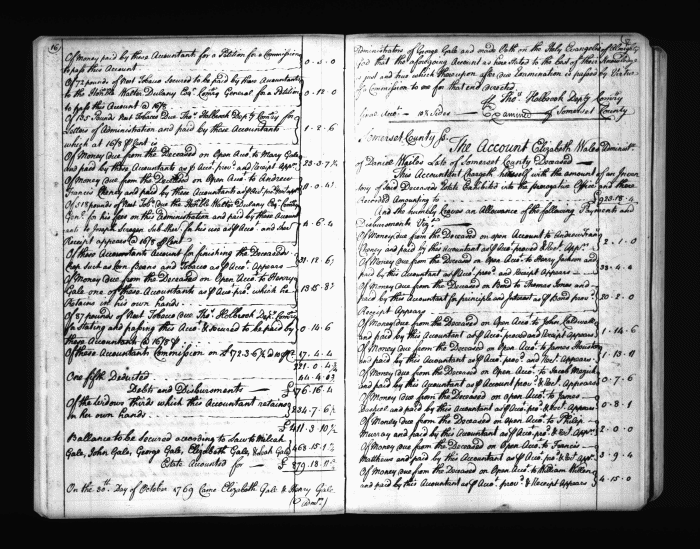 16
Of Money paid by these Accountants for a Petition for a Commission
to pass this Account 0 . 5 . 0
Of 72 pounds of Neet Tobacco Secured to be paid by these Accountants
to the Honble Walter Dulany Esqr Comry General for a Petition
to pass this Account @ 16/8 0 . 12 . 0
Of 135 Pound Neet Tobacco Due Thos Holbrook Depty Comry for
Letters of Administration and paid by these Accountants
which at 16/8 Cent is 1 . 2 . 6
Of Money due from the Deceased on Open Acco. to Mary Gale
and paid by these Accountants as Acco. prov'd and Receipt Appears
Of Money due from the Deceased on Open Acco. to Andrew
Francis Cheney and paid by these Accountants as
Of 518 pounds of Neet Tobo. Due the Honble Walter Dulany Esqr Comry
Genl for his fees on this Administration and paid by these Account
ants to Joseph
Receipt appears @ 16/8 Cent 4 . 6 . 4
Of these Accountants for finishing the Deceaseds
Crop such as Corn Beans and Tobacco as Acco. Appears 31 . 12 . 6
Of Money due from the Deceased on Open Acco. to Henry
Gale one of these Accountants as Acco. prov'd which he
Retains in his own hands
Of 87 pounds of Neet Tobacco Due Thos Holbrook Depty Comry
for Stating and passing this Acco. & Secured to be paid by
these Accountants @ 16/8 0 . 14 . 6
Of these Accountants Commission on 17 . 4 . 4
One fifth Deducted
Debts and Disbursments £ 176 . 16 . 4
Of the Widows thirds which this Accountant retains
in her own hands 234 . 7 . 6
£ 411 . 3 . 10
Ballance to be Secured according to Law to
Gale, John Gale, George Gale, Elizabeth Gale, & Leah Gale 468 . 15 . 1
Estate Accounted for £ 879 . 18 . 11
On the 30th Day of October 1769 Came Elizabeth Gale & Henry Gale
(admrs)
Administrators of George Gale and made Oath on the Holy Evangelies of Almighty
God that the aforegoing Account as here stated to the best of their Knowledge
is just and true which thereupon after due Examination is passed by Virtue
of a Commission to me for that end directed
Thos Holbrook Depty Comry
of Somerset County
Examined
Somerset County Sc.
The Account Elizabeth Wales Administx
of Daniel Wales Late of Somerset County Deceased
This Accountant Chargeth herself with the amount of an Inven
tory of Said Deceaseds Estate Exhibited into the prerogative Office and there
Recorded Amounting to 923 . 18 . 4
And she humbly Craves an Allowance of the following Payments and
Disbursments Viz.
Of Money due from the Deceased on open Account to Andrew Francis
Cheney and paid by this Accountant as Acco. proved & Rect. Appears 2 . 1 . 0
Of Money due from the Deceased on Open Acco. to Henry Jackson and
paid by this Accountant as Acco. prov'd and Receipt Appears
Of Money due from the Deceased on Bond to Thomas Jones and
paid by this Accountant for principle and Interest as Bond prov'd
Receipt Appears 20 . 2 . 0
Of Money due from the Deceased on Open Acco. to John Caldwell
and paid by this Accountant as Acco. proved and Receipt Appears 1 . 14 . 6
Of Money due from the Deceased on Open Acco. to James Houston
and paid by this Accountant as Acco. proved and Rect. Appears 1 . 13 . 11
Of Money due from the Deceased on Open Acco. to Jacob
and paid by this Accountant as Account prov'd & Rect. Appears 0 . 7 . 6
Of Money due from the Deceased on Open Acco. to James
and paid by this Accountant as Acco. prov'd & Rect. Appears 0 . 8 . 1
Of Money due from the Deceased on Open Acco. to Philip
Murray and paid by this Accountant as Acco. prov'd & Rect. Appears 2 . 0 . 0
Of Money due from the Deceased on Open Acco. to Francis
Matthews and paid by this Accountant as Acco. prov'd & Rect. Appears 3 . 9 . 4
Of Money due from the Deceased on Open Acco. to William
and paid by this Accountant as Acco. prov'd & Receipt Appears 4 . 15 . 0